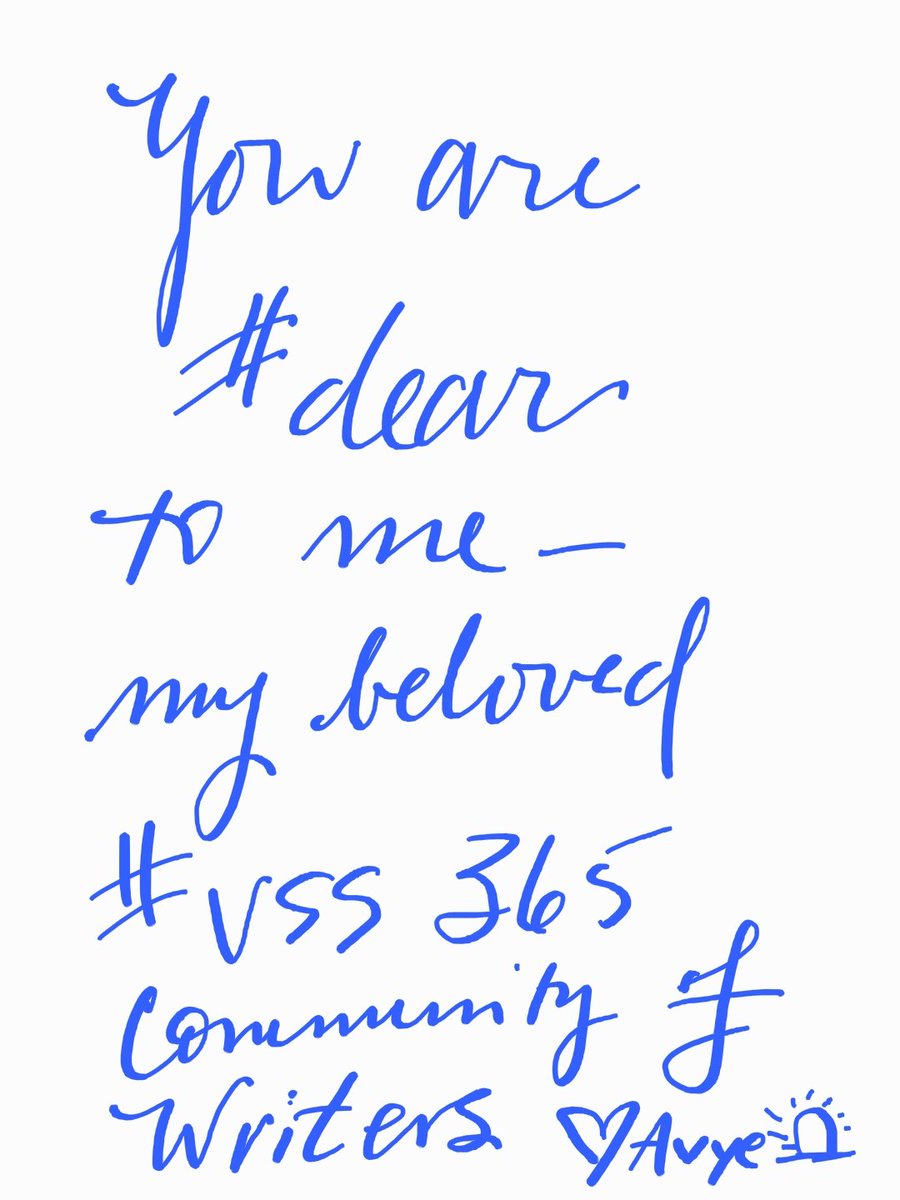 You are
#dear
to me —
my beloved
#vss 365
Community of
Writers ♡Avye